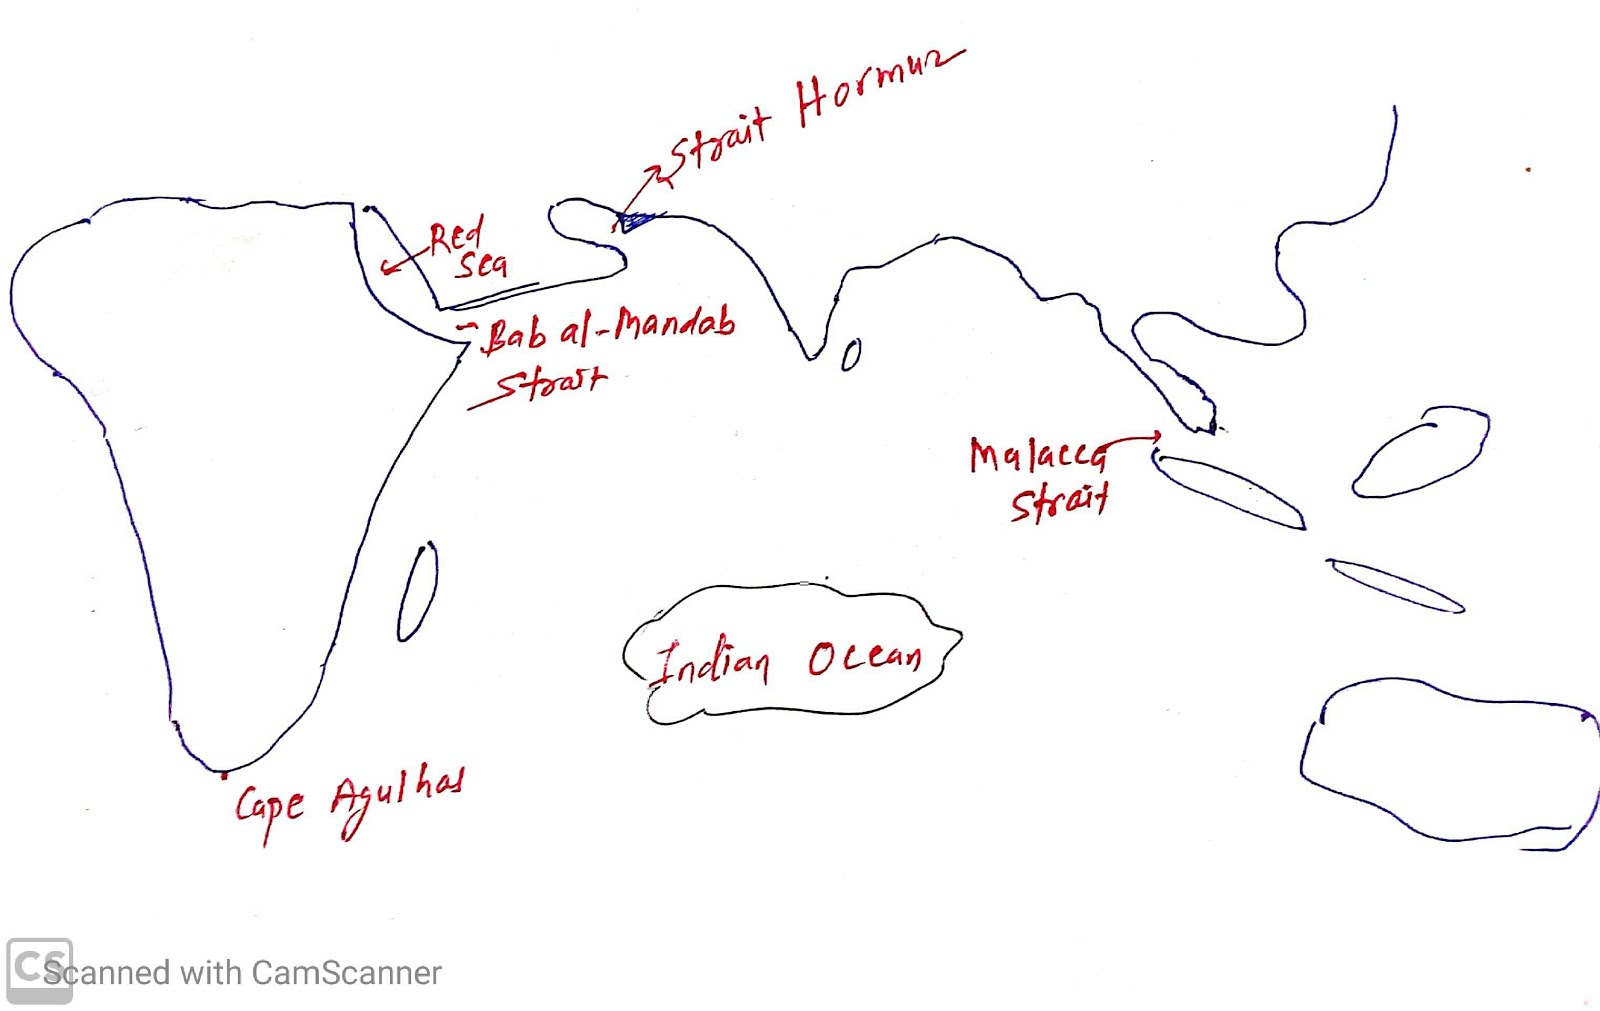 Strait Hormuz
Red
Sea
Bab al-Mandab
Strait
Malacca
Strait
Indian Ocean
Cape Agulhas
CS Scanned with CamScanner